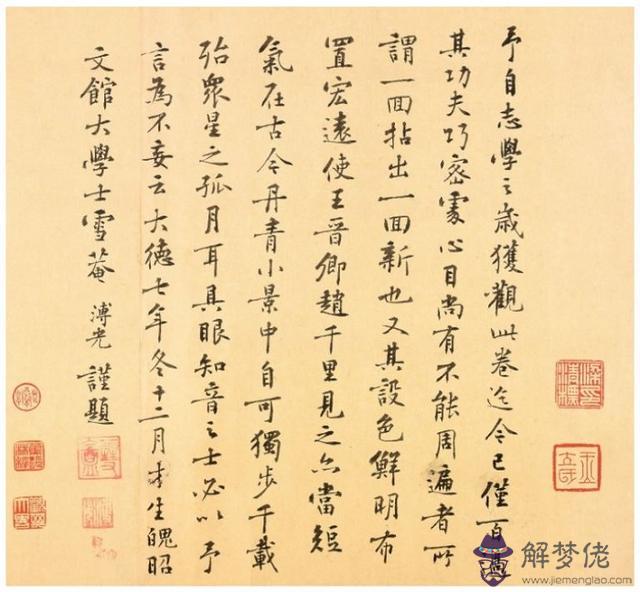 予自志學之歲獲觀此卷迄今已僅百過
其功夫巧密處心目尚有不能周遍者所
謂一回拈出一回新也又其設色鮮明布
置宏遠使王晉卿趙千里見之亦當短
氣在古今丹青小景中自可獨步千載
殆眾星之孤月耳具眼知音之士必以予
言為不妄云大德七年冬十二月才生魄昭
文館大學士雪菴溥光謹題
解梦佬
www.jiemenglao.com